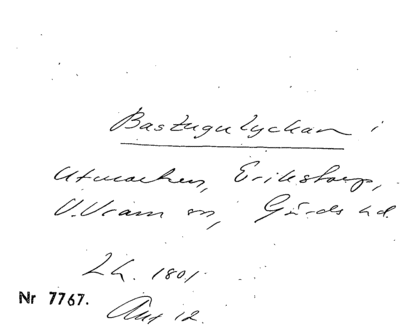 Bastugulyckan i
Utmarken, Erikstorp,
V. Vram sn, Gärds hd.
Lh. 1801
Nr 7767.
Akt 12.